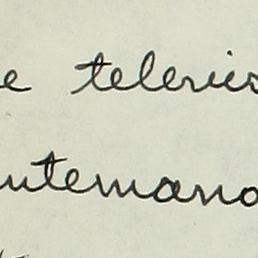 e televis
utemano